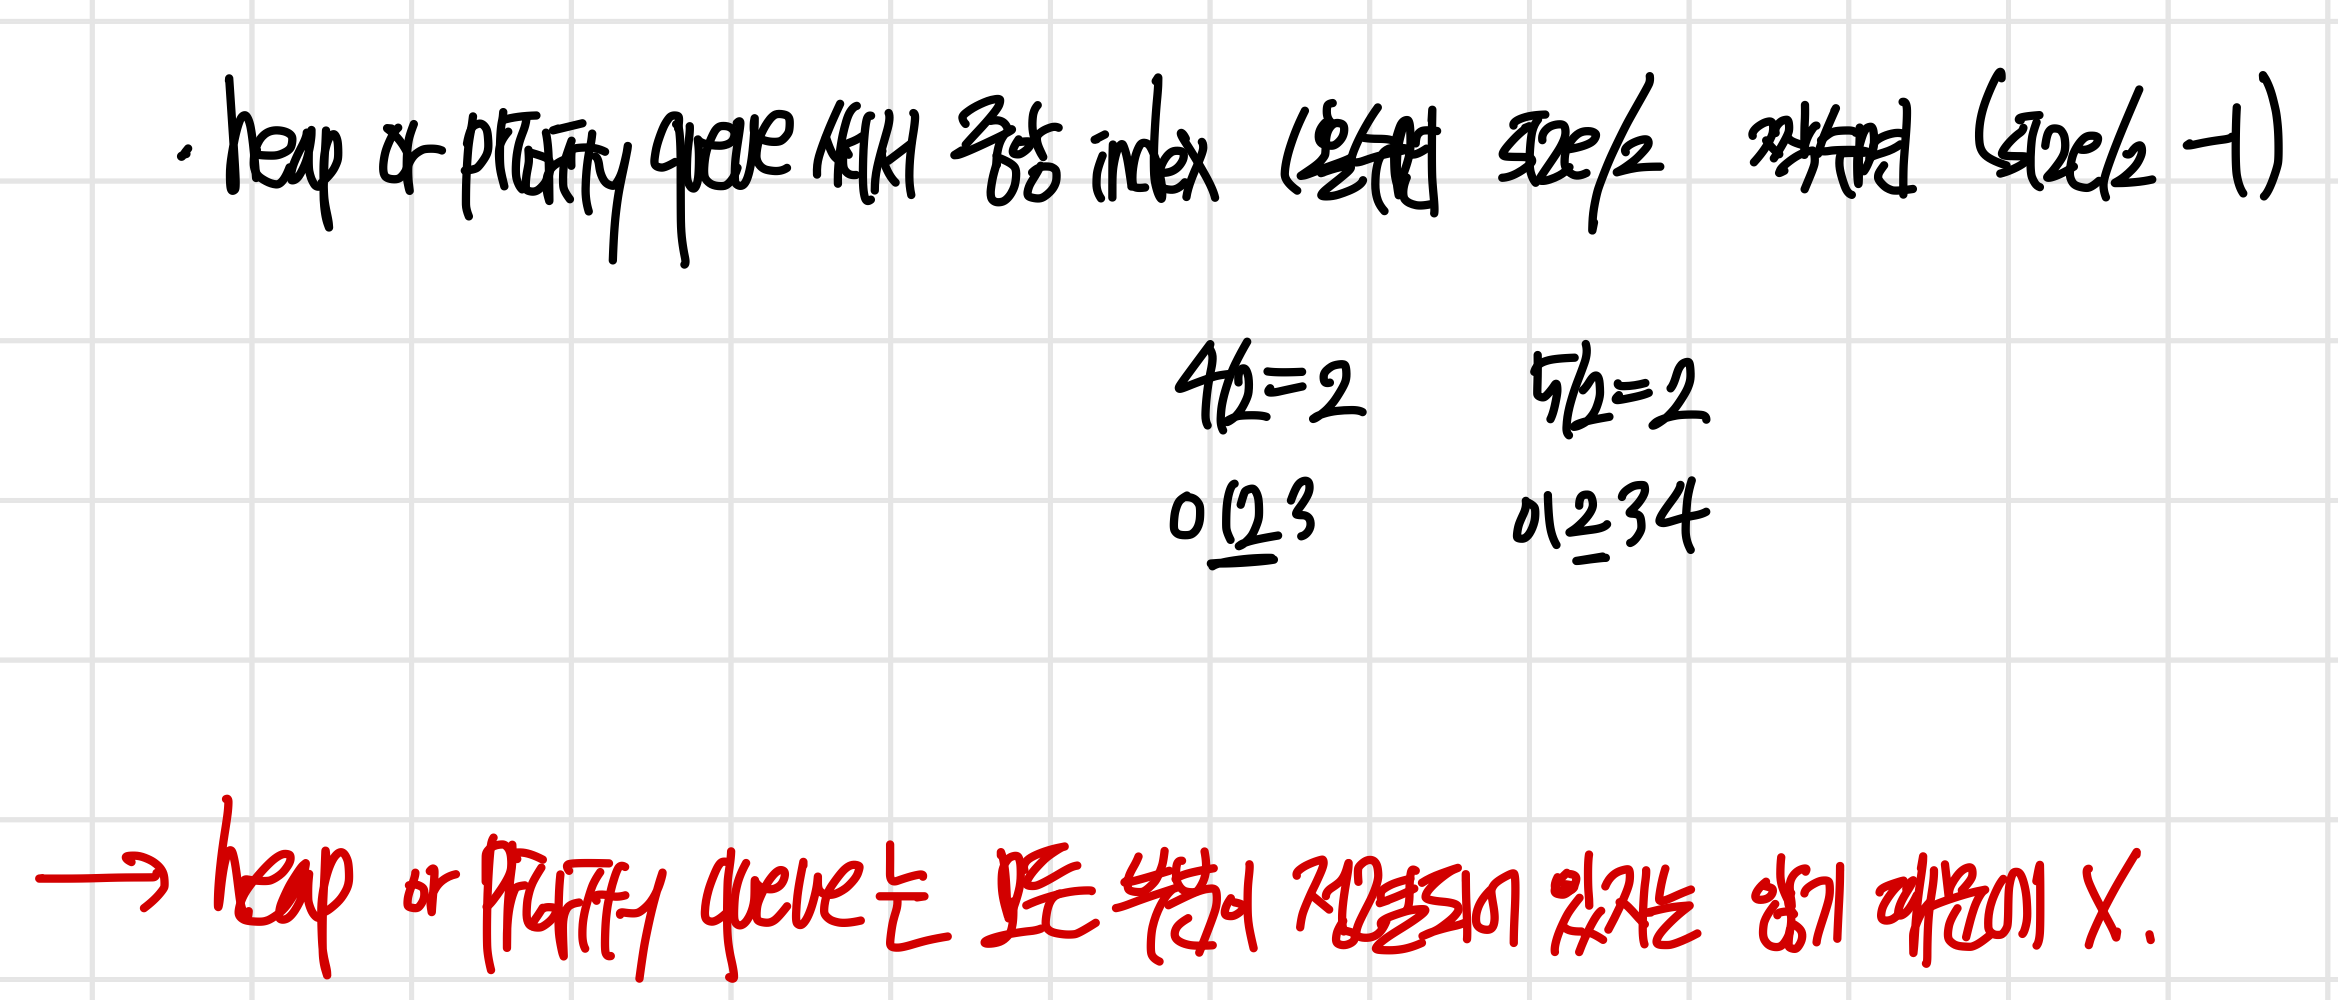 · heap or priority queue에서 중앙 index (홀수일때 size/2 짝수일때 (size/2 -1)
4/2=2 5/2=2
0123 01234
→ heap or Priority queue는 모든 부분이 정렬되어 있지는 않기 때문에 X.